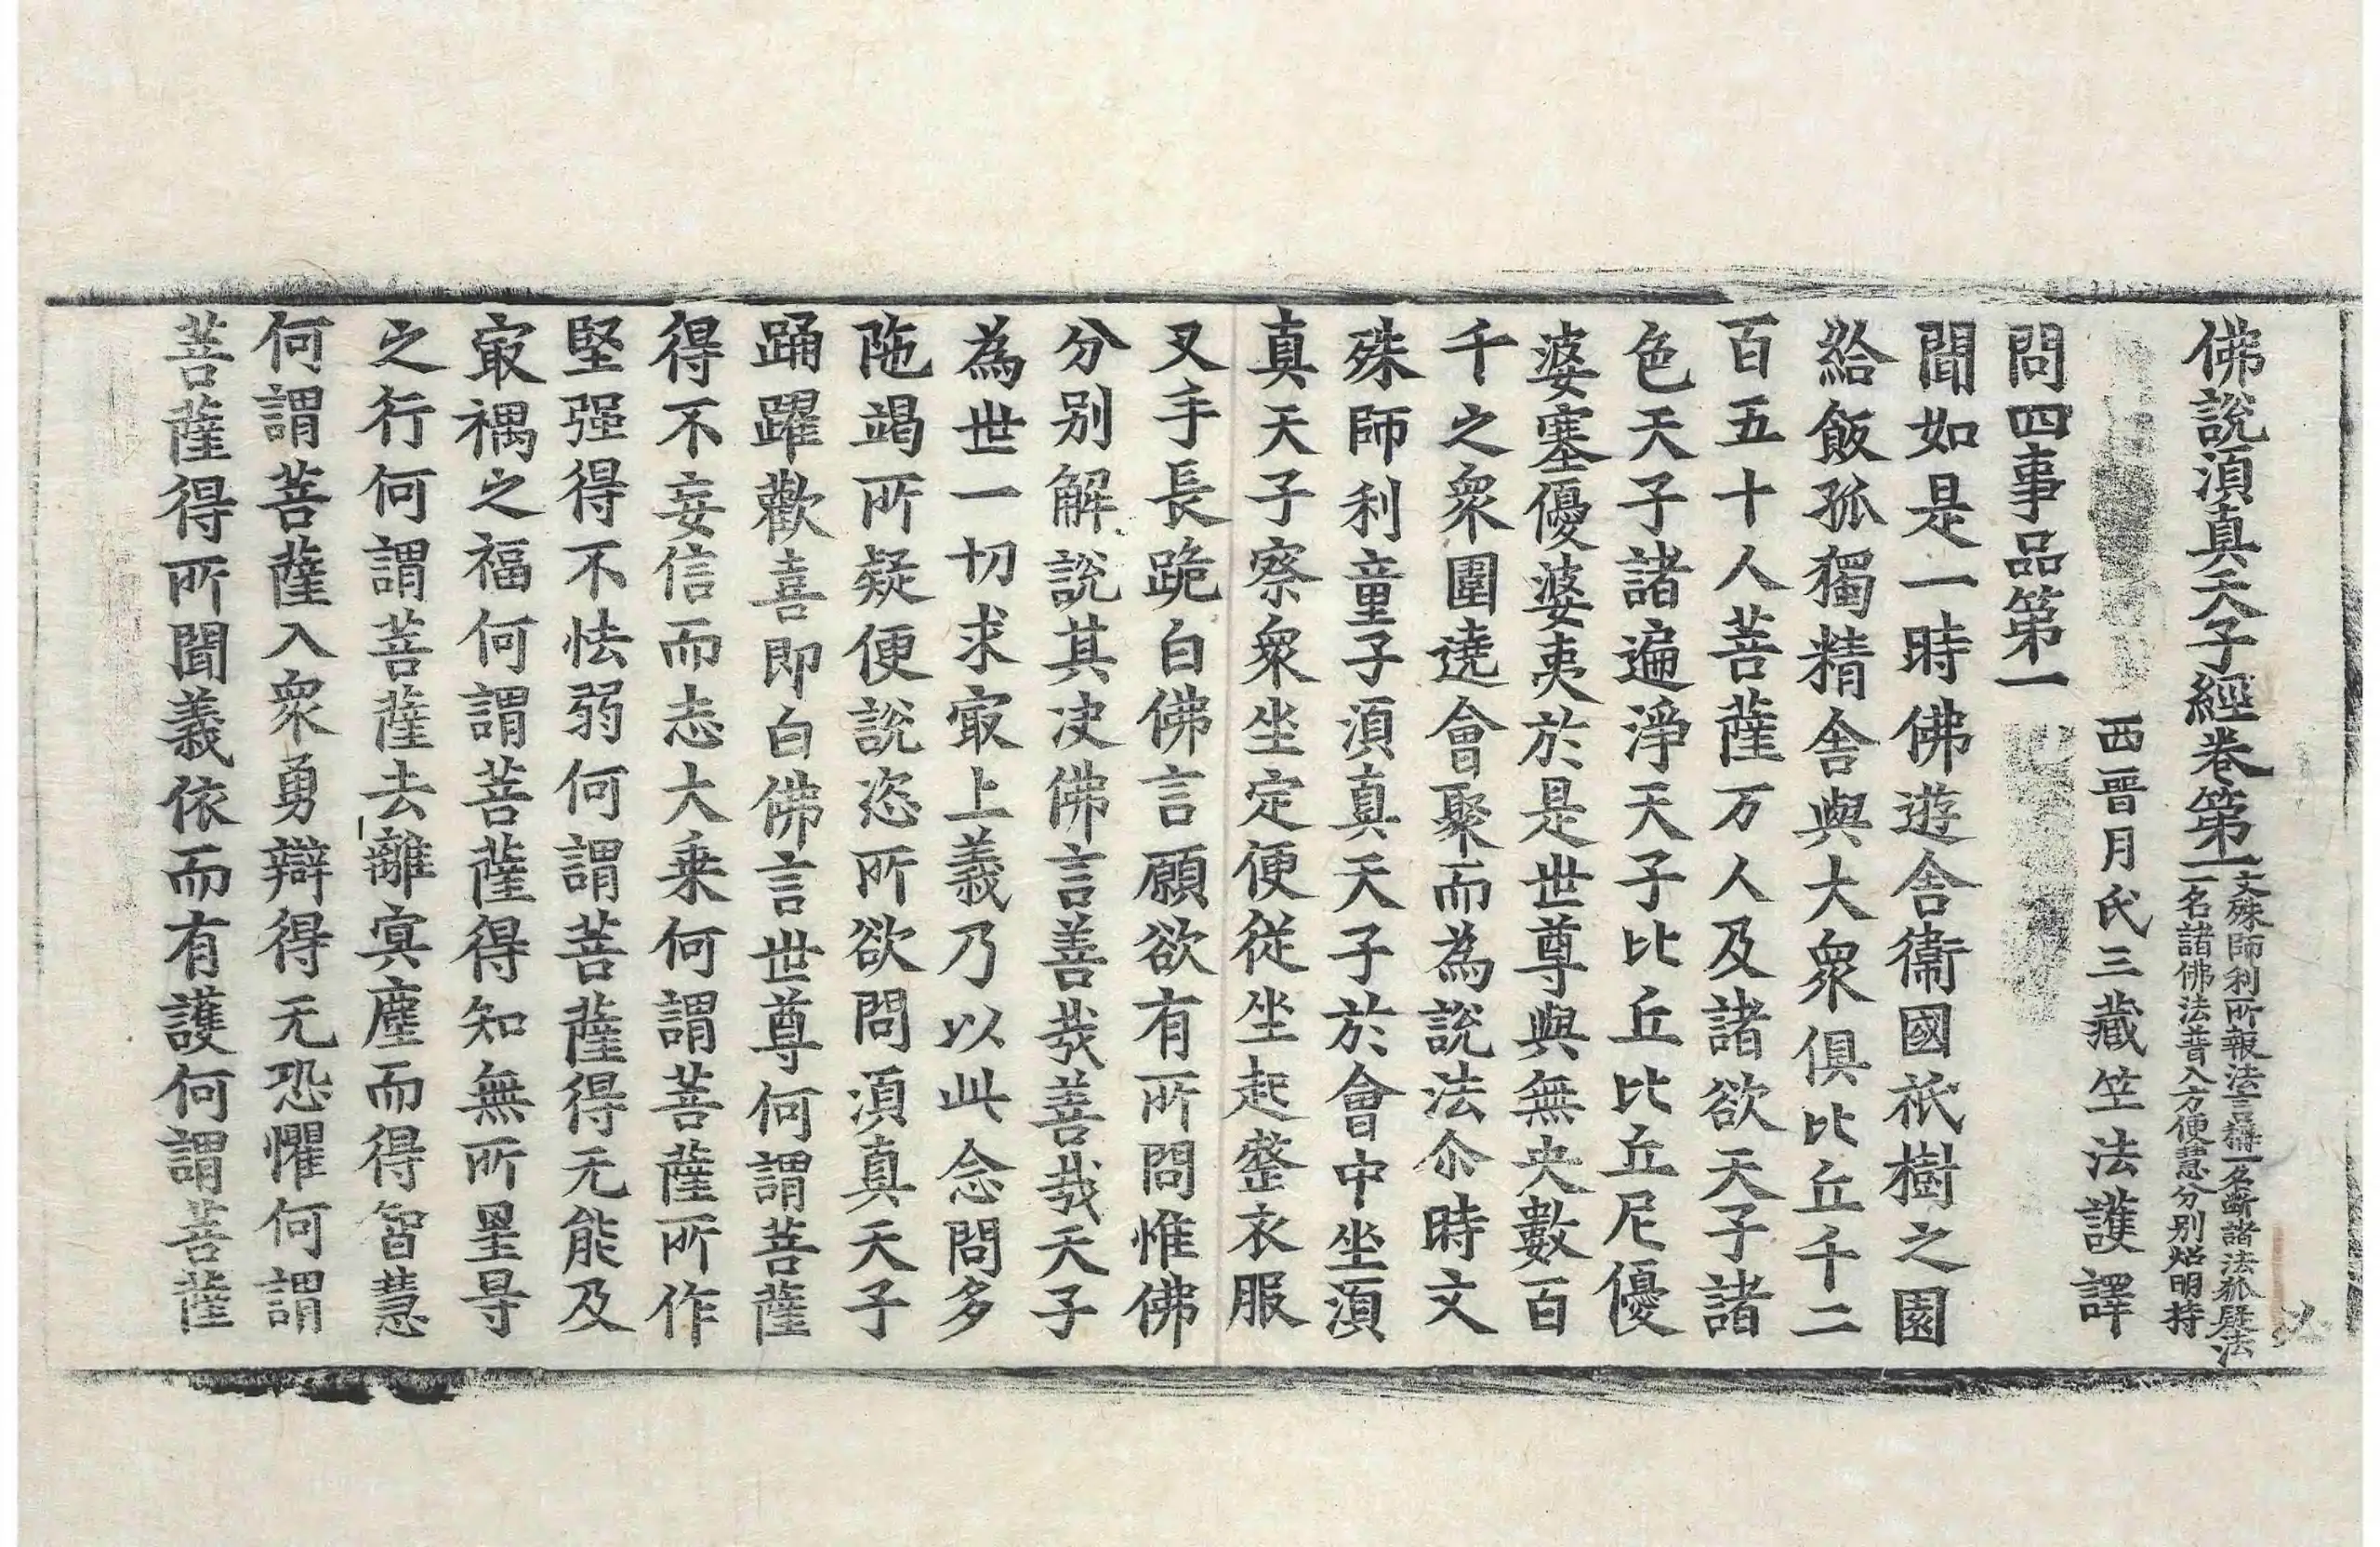 佛說湏真天子經卷第一
一名諸佛法普入方便慧分別炤明持
文殊師利所報法言稱一名斷諸法狐疑法
西晉月氏三藏竺法護譯
問四事品第一
聞如是一時佛遊舍衞國祇樹之園
給飯孤獨精舍與大衆俱比丘千二
百五十人菩薩万人及諸欲天子諸
色天子諸遍淨天子比丘比丘尼優
婆塞優婆夷於是世尊與無央數百
千之衆圍遶會聚而為說法尒時文
殊師利童子湏真天子於會中坐湏
真天子察衆坐定便從坐起整衣服
叉手長跪白佛言願欲有所問惟佛
分別解說其决佛言善哉善哉天子
為世一切求冣上義乃以此念問多
陁竭所疑便說恣所欲問湏真天子
踊躍歡喜即白佛言世尊何謂菩薩
得不妄信而志大乗何謂菩薩所作
堅强得不怯弱何謂菩薩得无能及
冣禍之福何謂菩薩得知無所罣㝵
之行何謂菩薩去離㝠塵而得智慧
何謂菩薩入衆勇辯得无恐懼何謂
菩薩得所聞義依而有護何謂菩薩